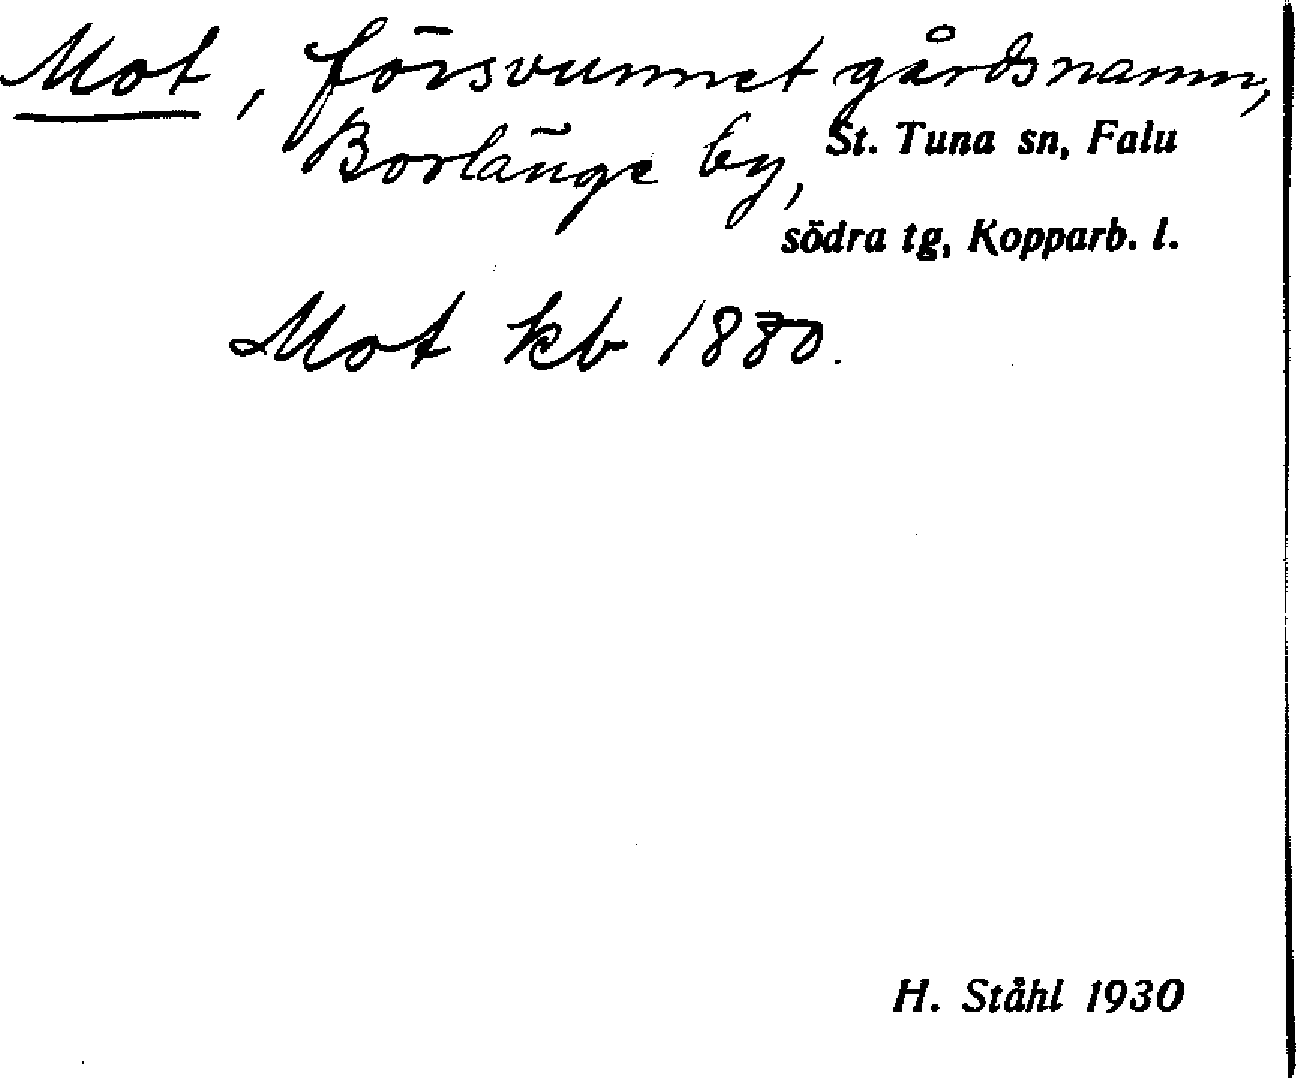 Mot, försvunnet gårdsnamn,
Borlänge by, St. Tuna sn, Falu
södra tg, Kopparb. l.
Mot kb 1880.
H. Ståhl 1930